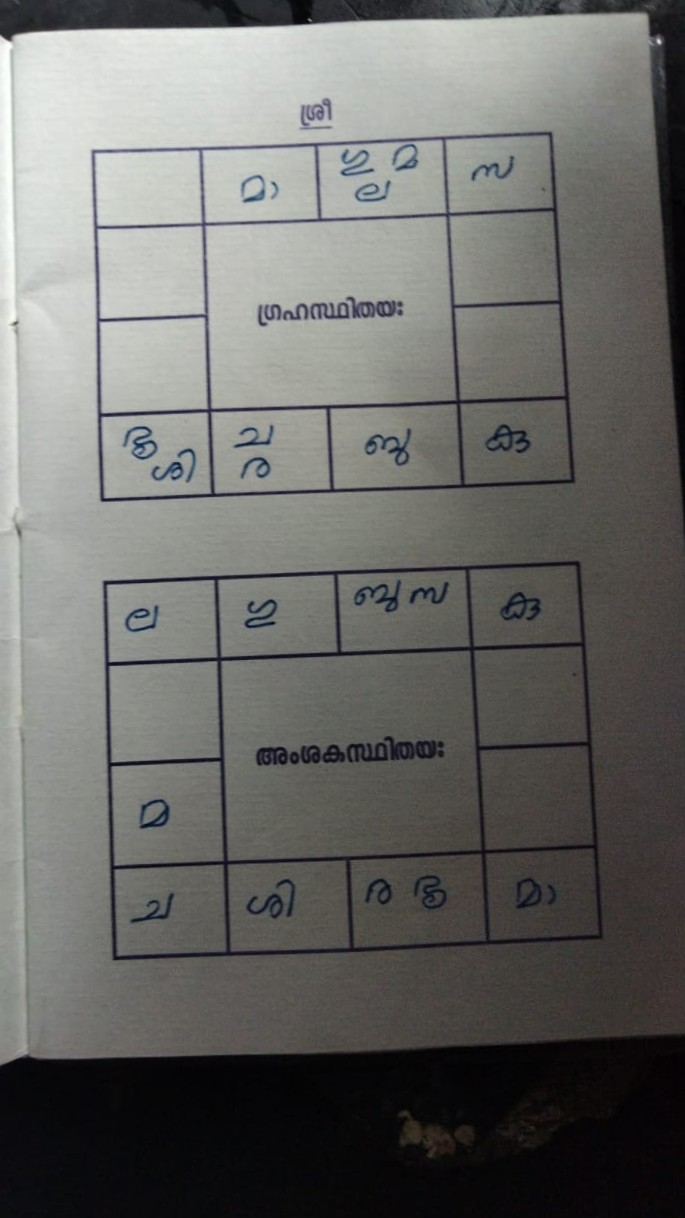 ശ്രീ
മാ
ഗു മ
ല
സ
ഗ്രഹസ്ഥിതയഃ
ശി
ച
ര
ബു
കു
ല
ഗു
ബു സ
കു
അംശകസ്ഥിതയഃ
മ
ച
ശി
ര
മാ